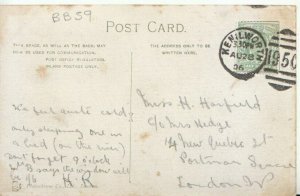 BB59
POST CARD.
THIS SPACE, AS WELL AS THE BACK, MAY
BE USED FOR COMMUNICATION.
POST OFFICE REGULATION.
INLAND POSTAGE ONLY.
THE ADDRESS ONLY TO BE
WRITTEN HERE.
KENILWORTH
AU 28
06
950
Miss H. Harfield
C/o Mrs Hedge
14 New Quebec St
Portman Square
London W
It's just quite
only sleeping one in
a bed (on the river)
Don't forget 9 o'clock
B says the window will
be
H. R.